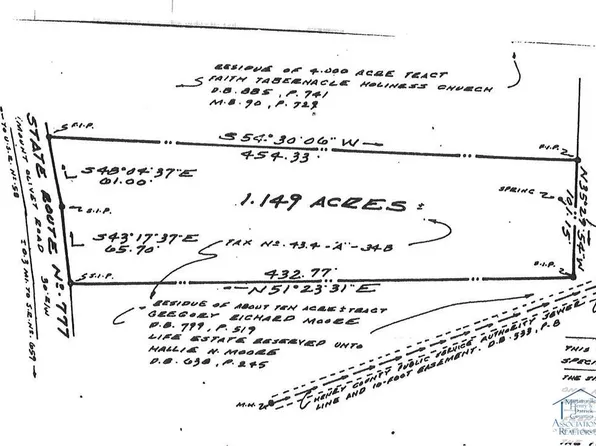 RESIDUE OF 4.000 ACRE TRACT
FAITH TABERNACLE HOLINESS CHURCH
D.B. 885, P. 741
M.B. 90, P. 729
S.I.P.
S 54° 30' 06" W
454.33'
S 48° 04' 37" E
61.00'
S.I.P.
S 43° 17' 37" E
65.70'
S.I.P.
1.149 ACRES ±
TAX Nº. 43.4 -"A"- 34B
SPRING
N 35° 29' 54" W
101.15'
432.77'
N 51° 23' 31" E
STATE ROUTE Nº. 777
(MOUNT OLIVET ROAD
50' R/W
TO U.S. R. Nº 58
± 0.3 MI. TO S.R. Nº 659
RESIDUE OF ABOUT TEN ACRE ± TRACT
GREGORY RICHARD MOORE
D.B. 799, P. 519
LIFE ESTATE RESERVED UNTO
HALLIE N. MOORE
D.B. 638, P. 245
M.H.
HENRY COUNTY PUBLIC SERVICE AUTHORITY SEWER
LINE AND 10-FOOT EASEMENT. D.B. 533, P. 8
THIS
SPEC
THE
ASSOCIATION
REALTORS